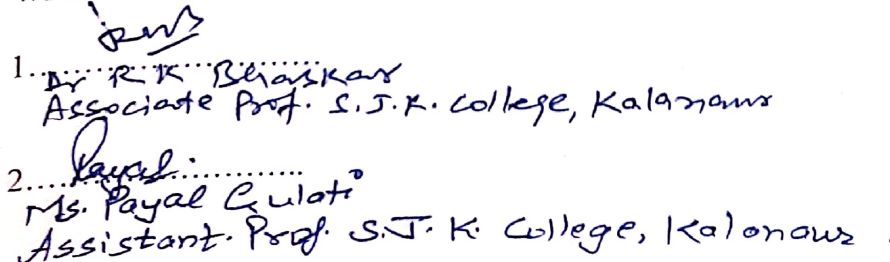 1..................
Dr R K Bhaskar
Associate Prof. S.J.K. College, Kalanaur
Payal
2..................
Ms. Payal Gulati
Assistant. Prof. S.J.K. College, Kalanaur.